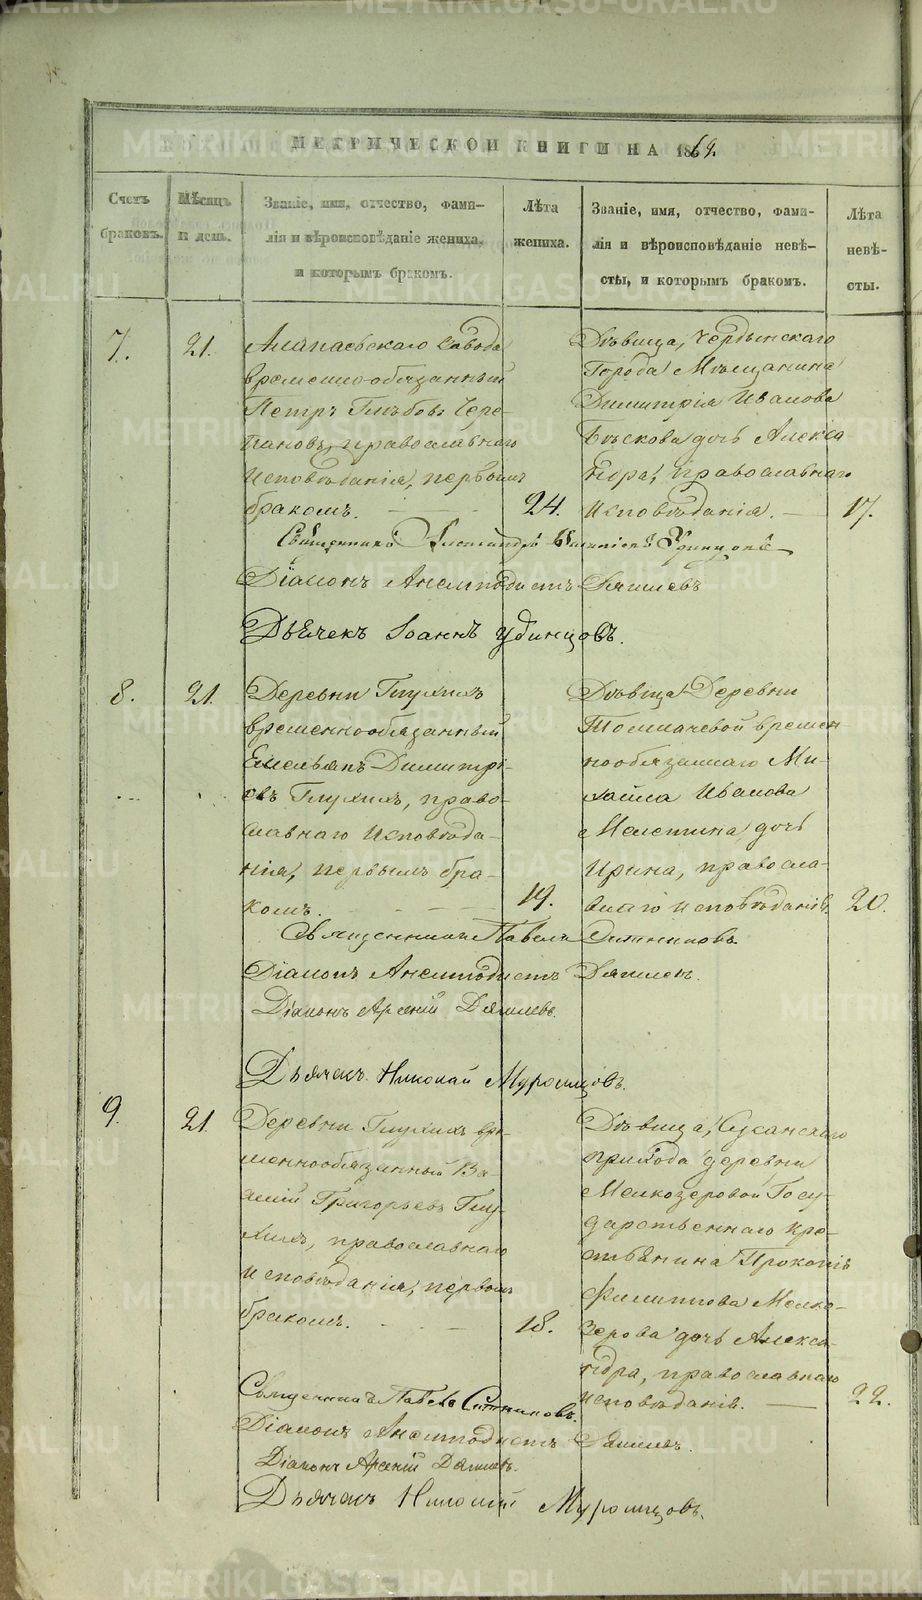 МЕТРИЧЕСКОЙ КНИГИ НА 1869.
Счетъ браковъ.
Мѣсяцъ и день.
Званіе, имя, отчество, фами-
лія и вѣроисповѣданіе жениха,
и которымъ бракомъ.
Лѣта жениха.
Званіе, имя, отчество, фами-
лія и вѣроисповѣданіе невѣ-
сты, и которымъ бракомъ.
Лѣта невѣ-
сты.
7.
21.
Алапаевскаго завода
временно-обязанный
Петръ Глѣбовъ Чере-
пановъ, православнаго
исповѣданія, первымъ
бракомъ.
24.
Дѣвица, Чердынскаго
Города Мѣщанина
Димитрія Иванова
дочь Алекса
ндра, православнаго
исповѣданія.
17.
Священникъ Александръ Удинцовъ
Діаконъ Анемподистъ Дягилевъ
Дьячекъ Іоаннъ Удинцовъ.
8.
21.
Деревни Глухихъ
временнообязанный
Емельянъ Димитрі-
евъ Глухихъ, право-
славнаго исповѣда-
нія, первымъ бра-
комъ.
19.
Дѣвица Деревни
Толмачевой времен
нообязаннаго Ми-
хаила Иванова
дочь
Ирина, правосла-
внаго исповѣданія.
20.
Священникъ Павелъ Ситниковъ.
Діаконъ Анемподистъ Дягилевъ.
Діаконъ Арсеній Дягилевъ.
Дьячекъ Николай Муромцовъ.
9.
21.
Деревни Глухихъ вре-
меннообязанный Ва
силій Григорьевъ Глу-
хихъ, православнаго
исповѣданія, первымъ
бракомъ.
18.
Дѣвица, Сусанскаго
прихода деревни
Мелкозеровой Госу-
дарственнаго кре-
стьянина Прокопія
Филиппова Мелко-
зерова дочь Алекса-
ндра, православнаго
исповѣданія.
22.
Священникъ Павелъ Ситниковъ.
Діаконъ Анемподистъ Дягилевъ.
Діаконъ Арсеній Дягилевъ.
Дьячекъ Николай Муромцовъ.
METRIKI.GASO-URAL.RU